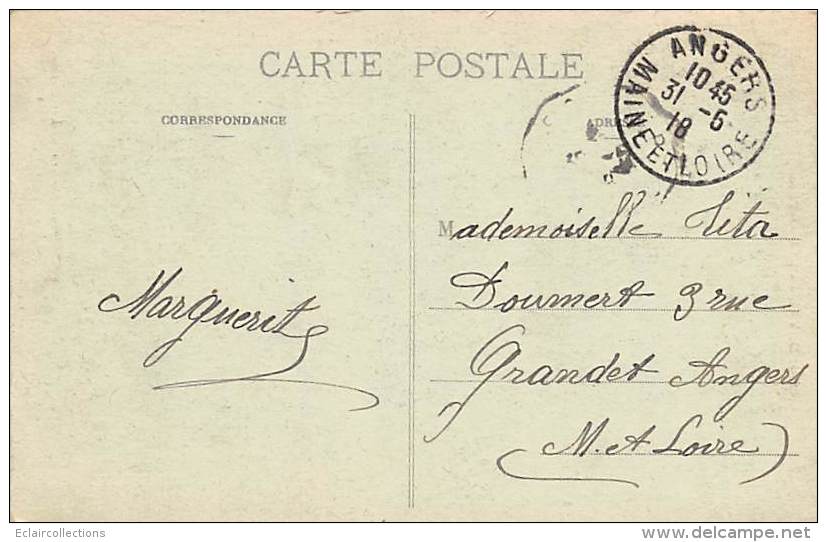 CARTE POSTALE
CORRESPONDANCE
ADRES
ANGERS
10 45
31 -5
18
MAINE ET LOIRE
Mademoiselle Tita
Doumert 3 rue
Grandet Angers
(M. et Loire)
Marguerite
Eclaircollections
delcampe.net